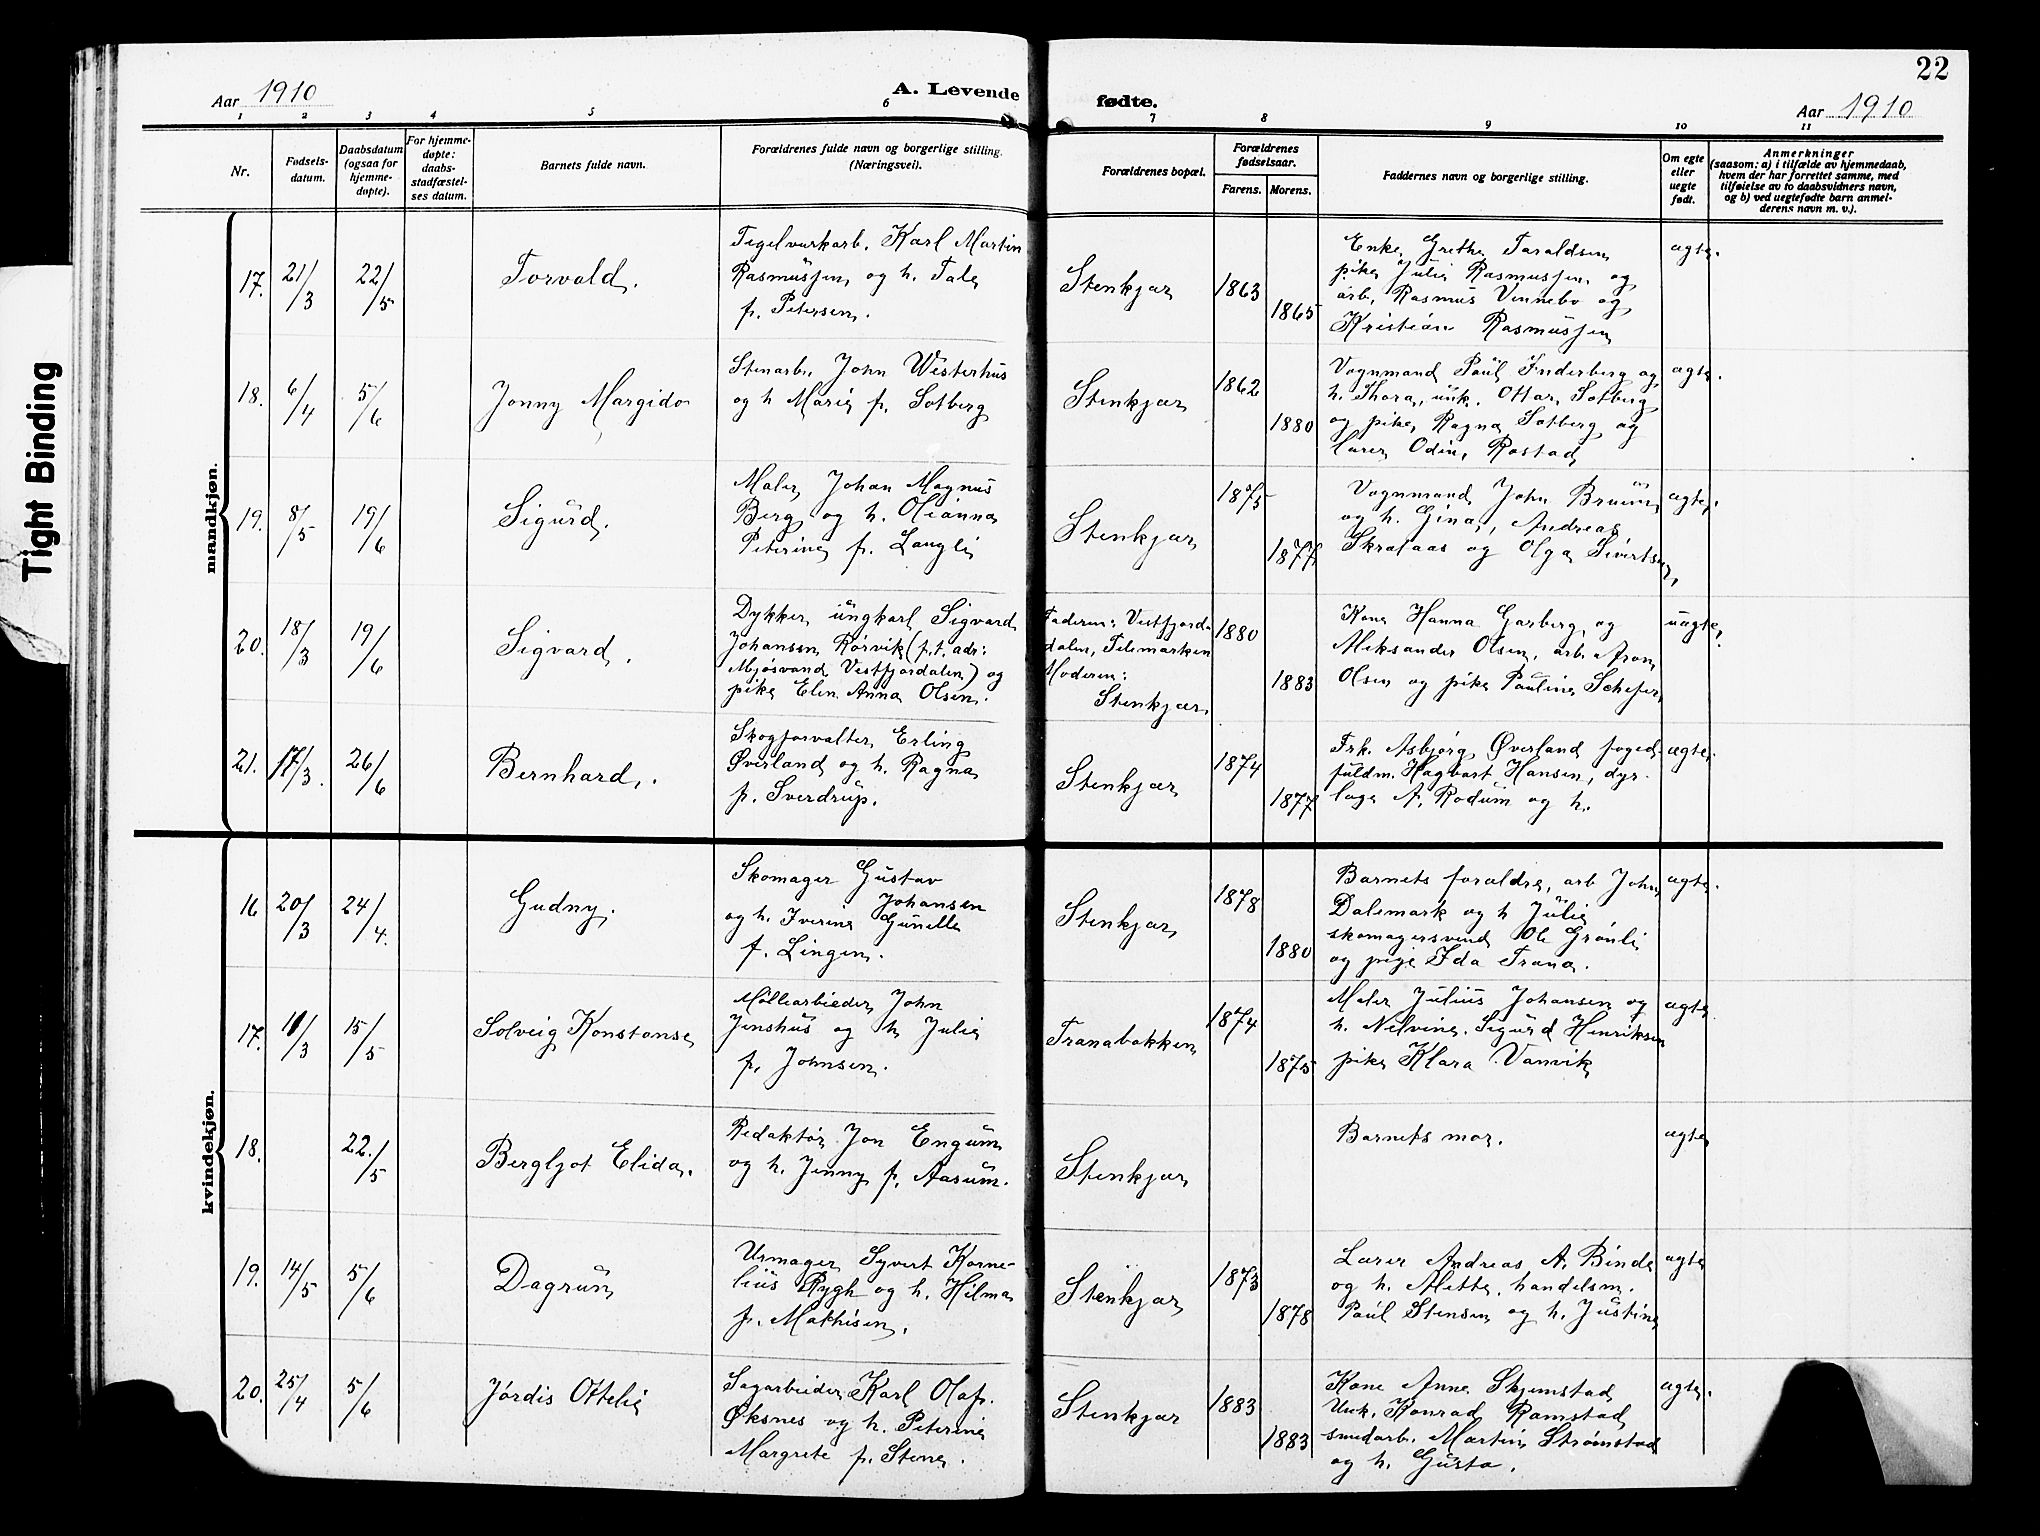 Tight Binding
22
Aar 1910
A. Levende
fødte.
Aar 1910
1 2 3 4 5 6 7 8 9 10 11
Nr.
Fødsels-
datum.
Daabsdatum
(ogsaa for
hjemme-
døpte).
For hjemme-
døpte:
daabs-
stadfæstel-
ses datum.
Barnets fulde navn.
Forældrenes fulde navn og borgerlige stilling.
(Næringsvei).
Forældrenes bopæl.
Forældrenes
fødselsaar.
Farens. Morens.
Faddernes navn og borgerlige stilling.
Om egte
eller
uegte
født.
Anmerkninger
(saasom: a) i tilfælde av hjemmedaab,
hvem der har forrettet samme, med
tilføielse av to daabsvidners navn,
og b) ved uegtefødte barn anmel-
derens navn m. v.).
mandkjøn.
17. 21/3 22/5 Torvald.
Tegelverkarb. Karl Martin
Rasmussen og h. Tale
f. Petersen.
Stenkjær 1863 1865
Enke Grethe Taraldsen
pike Julie Rasmussen og
arb. Rasmus Vennebo og
Kristian Rasmussen
ægte.
18. 6/4 5/6 Jonny Margido
Stenarb. John Westerhus
og h Marie f. Sotberg
Stenkjær 1862 1880
Vognmand Paul Inderberg og
h. Thora, unk. Ottar Sotberg
og pike Ragna Sotberg og
lærer Odin Rostad
ægte.
19. 8/5 19/6 Sigurd.
Maler Johan Magnus
Berg og h. Olianna
Peterine f. Langli
Stenkjær 1875 1877
Vognmand John Bruun
og h. Gina, Andreas
Skrataas og Olga Sivertsen
ægte.
20. 18/3 19/6 Sigvard.
Dykker ungkarl Sigvard
Johansen Rörvik (p. t. adr:
Mjösvand Vestfjordalen) og
pike Elen Anna Olsen.
Faderen: Vestfjord-
dalen, Telemarken
Moderen:
Stenkjær
1880 1883
Kone Hanna Garberg og
Aleksander Olsen, arb. Aron
Olsen og pike Pauline Schefer
uægte.
21. 17/3. 26/6 Bernhard.
Skogforvalter Erling
Øverland og h. Ragna
f. Sverdrup.
Stenkjær 1874 1877
Frk. Asbjørg Øverland foged-
fuldm. Hagbart Hansen, dyr-
læge A. Rodum og h.
ægte.
kvindekjøn.
16 20/3 24/4. Gudny.
Skomager Gustav
Johansen
og h. Iverine Gunelle
f. Lingen.
Stenkjær 1878 1880
Barnets forældre, arb John
Dalemark og h Julie
skomagersvend Ole Grönli
og pige Ida Trana.
ægte.
17. 11/3 15/5 Solveig Konstanse
Möllearbieder John
Jenshus og h Julie
f. Johnsen.
Tranabakken 1874 1875
Maler Julius Johansen og
h. Nelvine. Sigurd Henriksen
pike Klara Vanvik
ægte
18. 22./5 Bergljot Elida.
Redaktör Jon Engum
og h. Jenny f. Aasum.
Stenkjær
Barnets mor.
ægte
19. 14/5 5/6 Dagrun
Urmager Syvert Korne-
lius Rygh og h. Hilma
f. Mathisen.
Stenkjær 1873 1878
Lærer Andreas A. Binde
og h. Mette, handelsm.
Paul Stensen og h. Justine
ægte
20. 25/4 5/6 Jördis Ottelie
Sagarbieder Karl Olaf
Øksnes og h. Peterine
Margrete f. Stene.
Stenkjær 1883 1883
Kone Anne Skjemstad
Unk. Konrad Ramstad
smedarb. Martin Strømstad
og h. Gusta.
ægte.